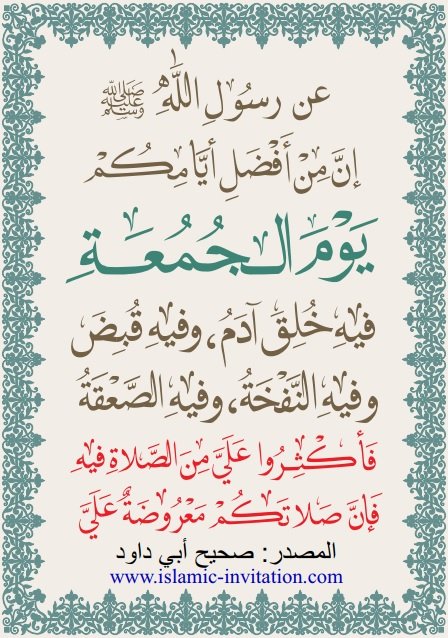 عن رسُولِ اللَّهِ ﷺ
إنَّ مِنْ أَفْضَلِ أيَّامِكُمْ
يَوْمَ الجُمُعَةِ
فيهِ خُلِقَ آدَمُ، وفيهِ قُبِضَ
وفيهِ النَّفْخَةُ، وفيهِ الصَّعْقَةُ
فَأكْثِرُوا عَلَيَّ مِنَ الصَّلاةِ فيهِ
فَإنَّ صَلاتَكُمْ مَعْرُوضَةٌ عَلَيَّ
المصدر: صحيح أبي داود
www.islamic-invitation.com